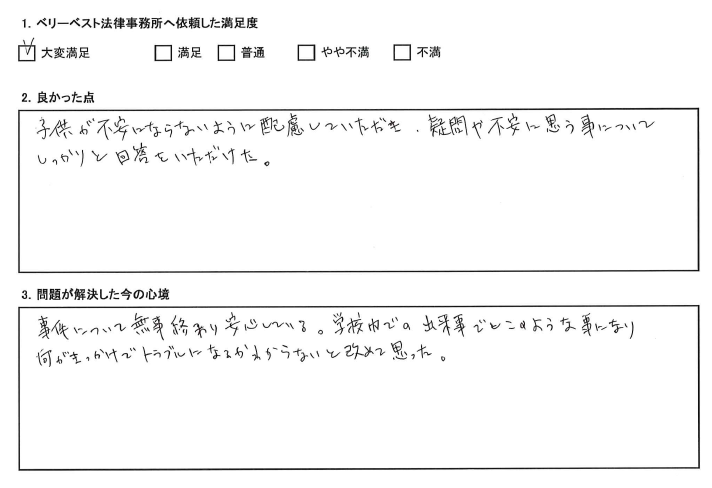 1. ベリーベスト法律事務所へ依頼した満足度
大変満足 満足 普通 やや不満 不満
2. 良かった点
子供が不安にならないように配慮していただき、疑問や不安に思う事について
しっかりと回答をいただけた。
3. 問題が解決した今の心境
事件について無事終わり安心している。学校内での出来事でこのような事になり
何がきっかけでトラブルになるかわからないと改めて思った。